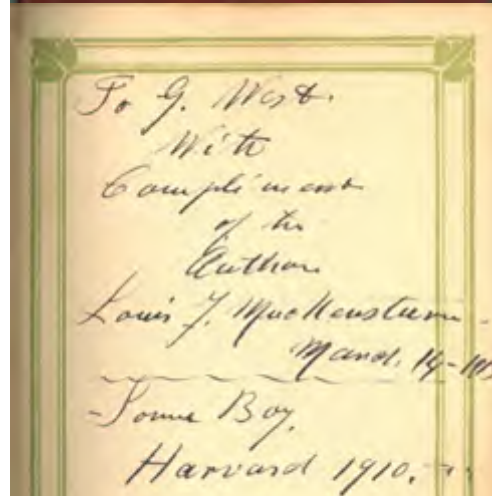 To G. West.
With
Compliments
of the
Author
Louis J.
March. 14-
-Some Boy.
Harvard 1910.